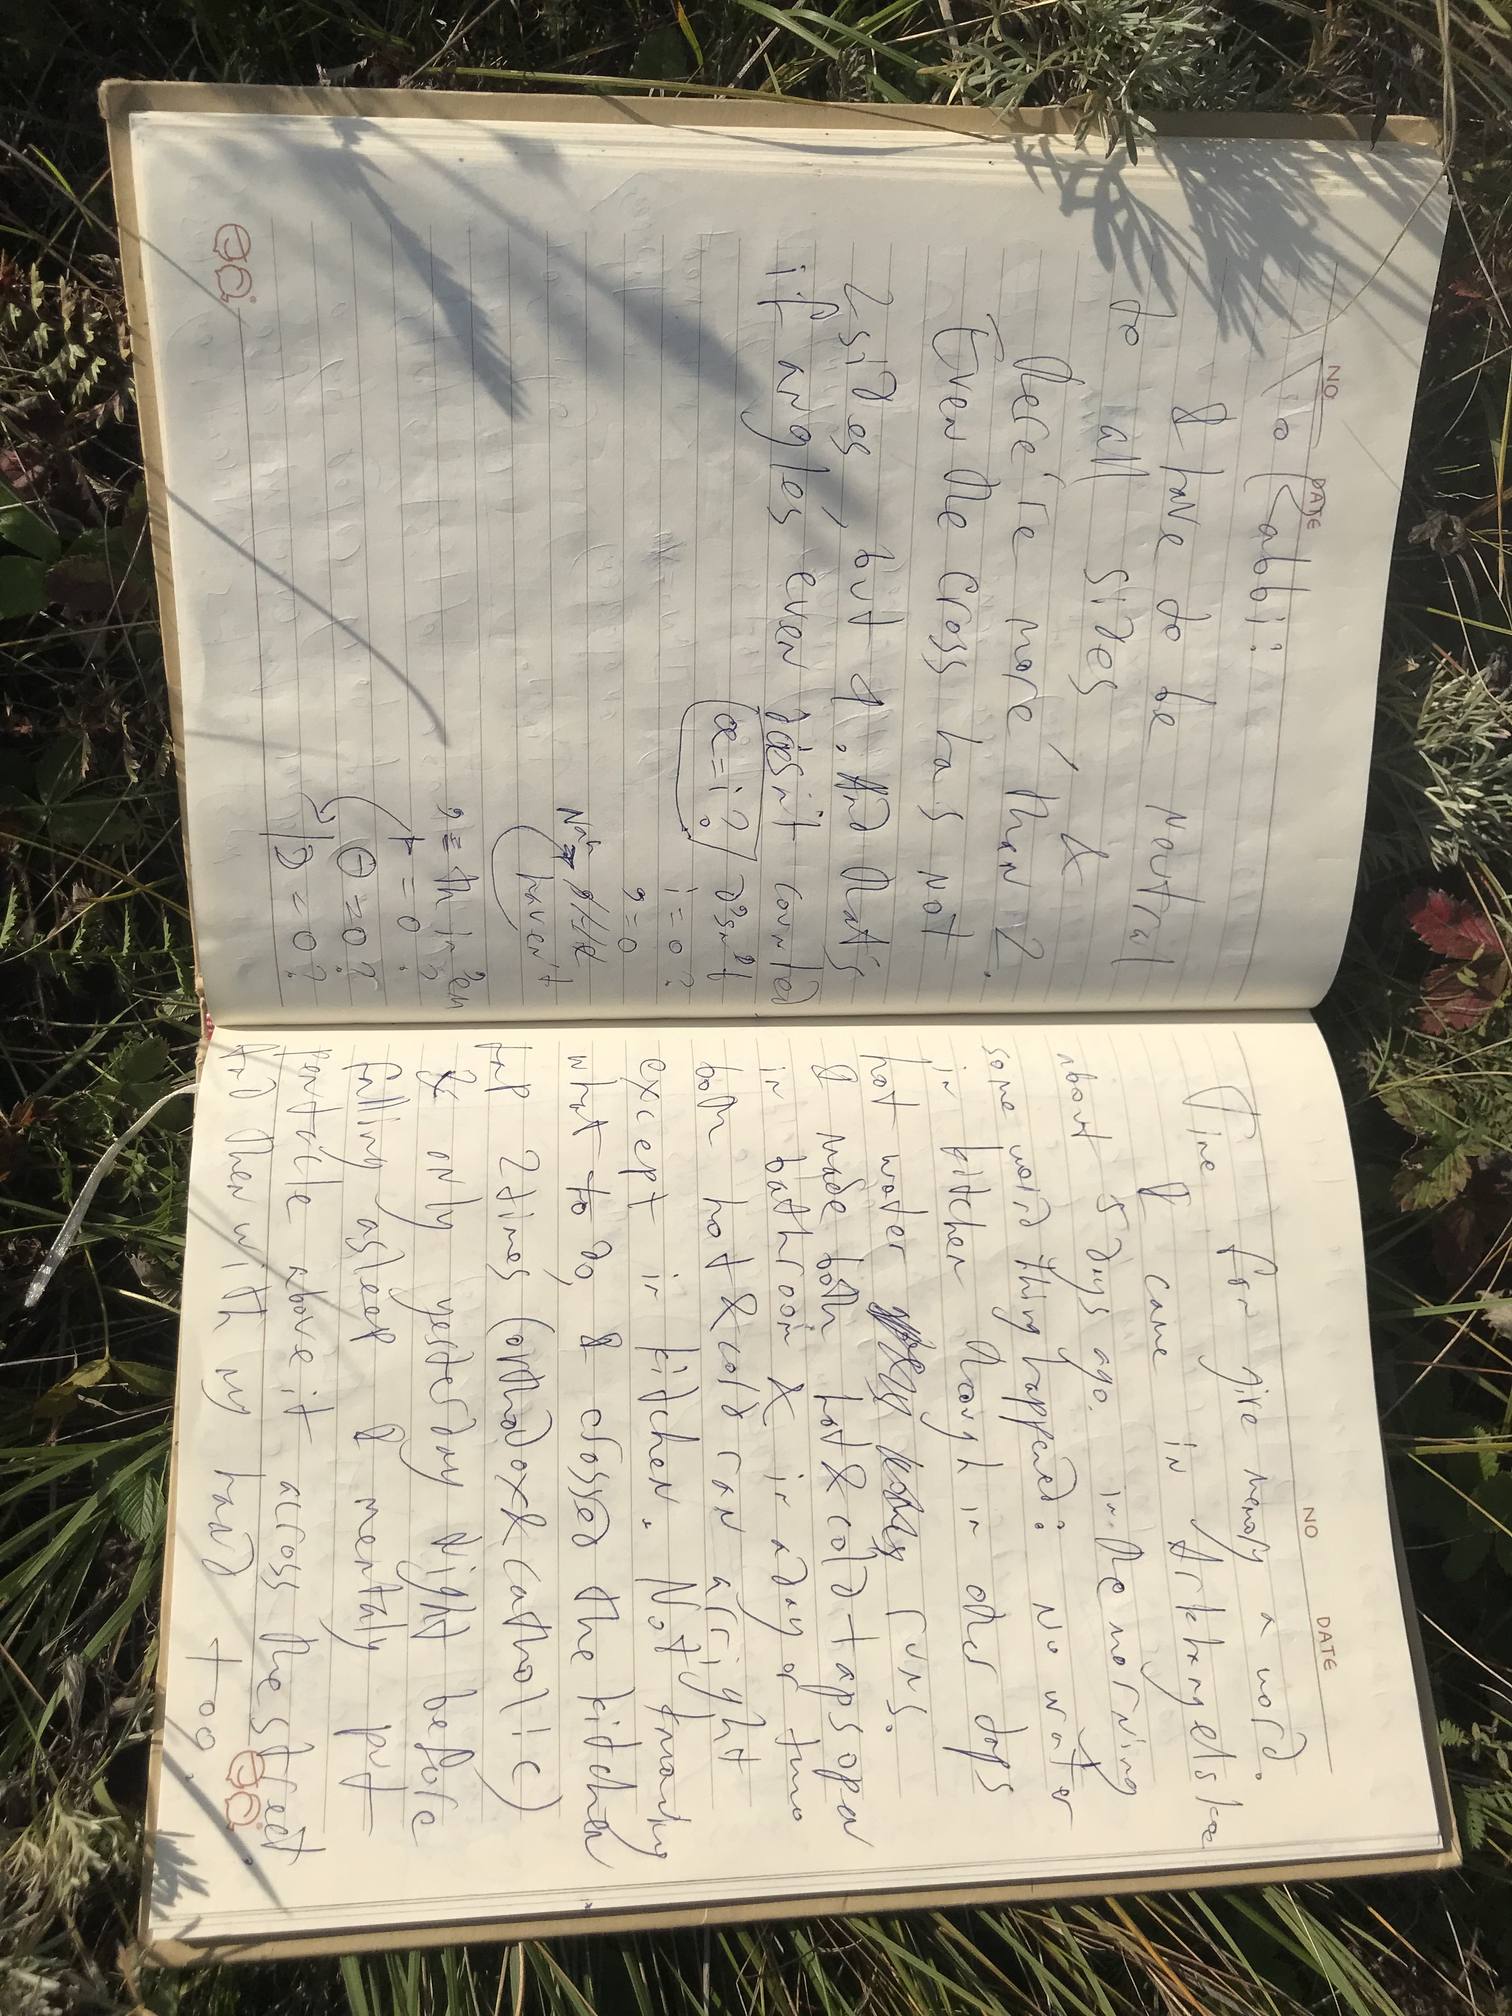 NO
DATE
To Rabbi:
I have to be neutral
to all sides, &
there're more than 2.
Even the cross has not
2 sides, but 4. And that's
if angles even doesn't counted
œ = i? doesn't
i = 0?
9 = 0
haven't
= 0
θ = 0?
= 0?
NO
DATE
Time for give memory a word.
I came in Arkhangelskoe
about 5 days ago. in the morning
some weird thing happened: no water
in kitchen though in other days
hot water runs.
I made both hot & cold taps open
in bathroom & in a day or two
both hot & cold ran arright
except in kitchen. Not knowing
what to do, I crossed the kitchen
tap 2 times (orthodox & catholic)
& only yesterday night before
falling asleep I mentaly put
pentacle above it across the street
And then with my hand too.